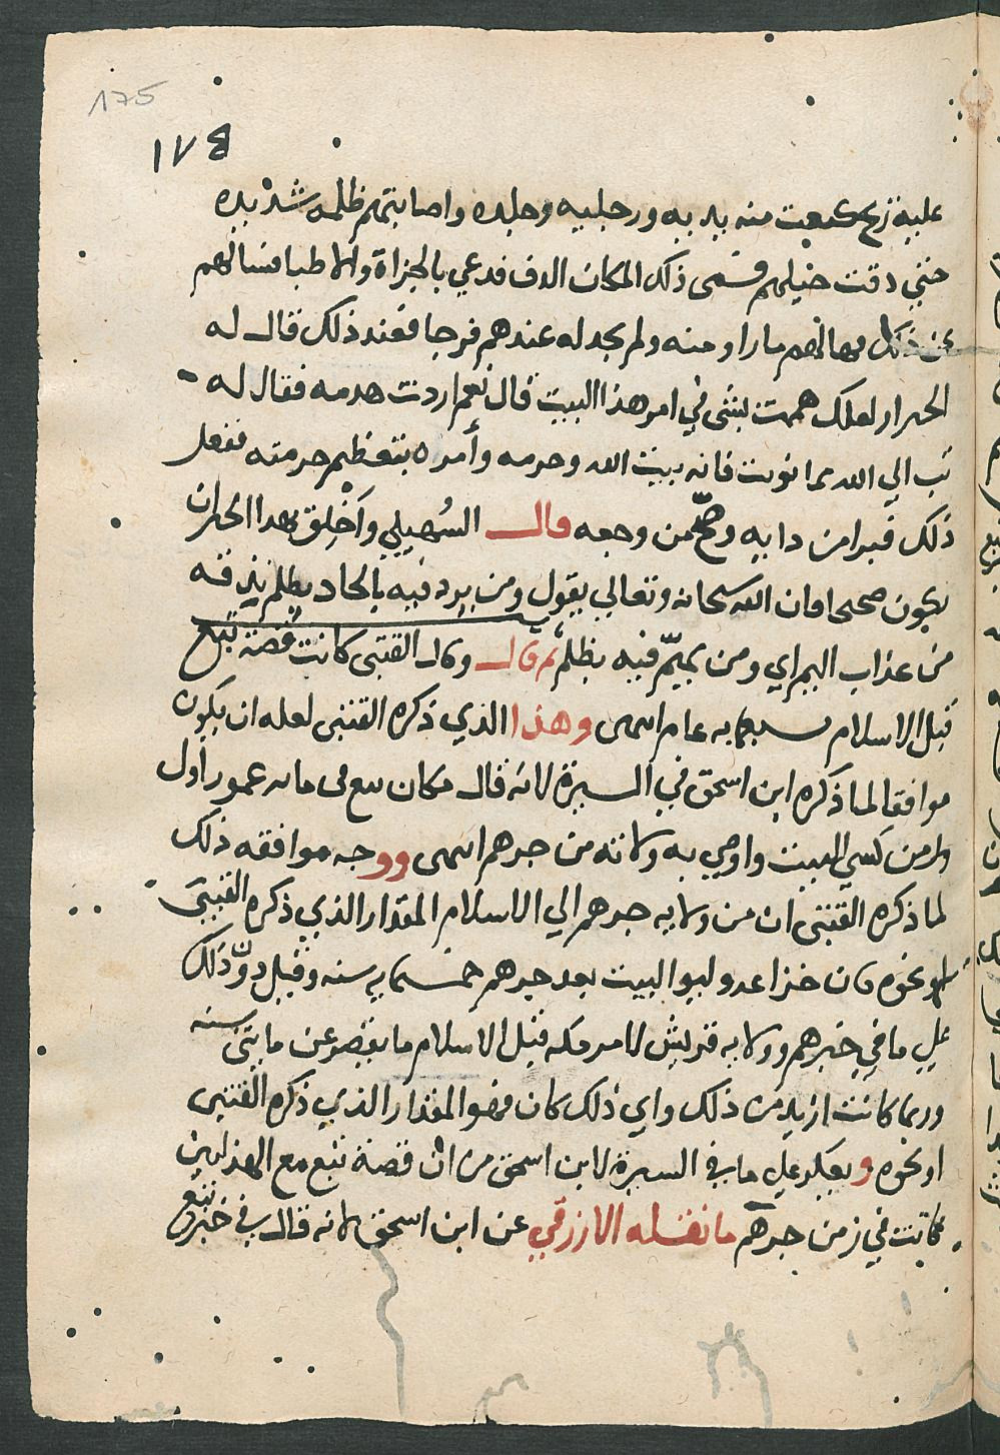 175
١٧٤
عليه ريح كنعت منه يديه ورجليه وجلده واصابتهم ظلمة شديده
حتي دقت خيلهم فسمى ذلك المكان الدف فدعي بالحزاة والاطبا فسالهم
عن ذلك فهالهم ما راو منه ولم يجد له عندهم فرجا فعند ذلك قال له
الحبران لعلك هممت بشى في امر هذا البيت قال نعم اردت هدمه فقال له
تب الي الله مما نويت فانه بيت الله وحرمه وأمره بتعظيم حرمته ففعل
ذلك فبرا من دايه وصحّ من وجعه قال السُهيلي وأخلق بهذا الخبر ان
يكون صحيحا فان الله سبحانه وتعالي يقول ومن يرد فيه بالحاد بظلم نذقه
من عذاب اليم اي ومن يهمّ فيه بظلم ثم قال وقال القتبى كانت قصة تبع
قبل الاسلام بسبعمايه عام انتهى وهذا الذي ذكره القتبى لعله ان يكون
موافقا لما ذكره ابن اسحق في السيرة لانه قال فكان تبع فى ما يزعمون اول
من كسي البيت واوصي به ولاته من جرهم انتهى ووجه موافقه ذلك
لما ذكره القتبى ان من ولايه جرهم الي الاسلام المقدار الذي ذكره القتبى
او نحوه فان خزاعه وليوا البيت بعد جرهم خمسمايه سنه وقيل دون ذلك
علي ما في خبرهم وولايه قريش لامر مكه قبل الاسلام ما يقصر عن مايتى سنه
وربما كانت ازيد من ذلك واي ذلك كان فهو المقدار الذي ذكره القتبى
او نحوه ويعكر علي ما في السيرة لابن اسحق من ان قصة تبع مع الهذليين
كانت في زمن جرهم ما نقله الازرقي عن ابن اسحق لانه قال في خبر تبع